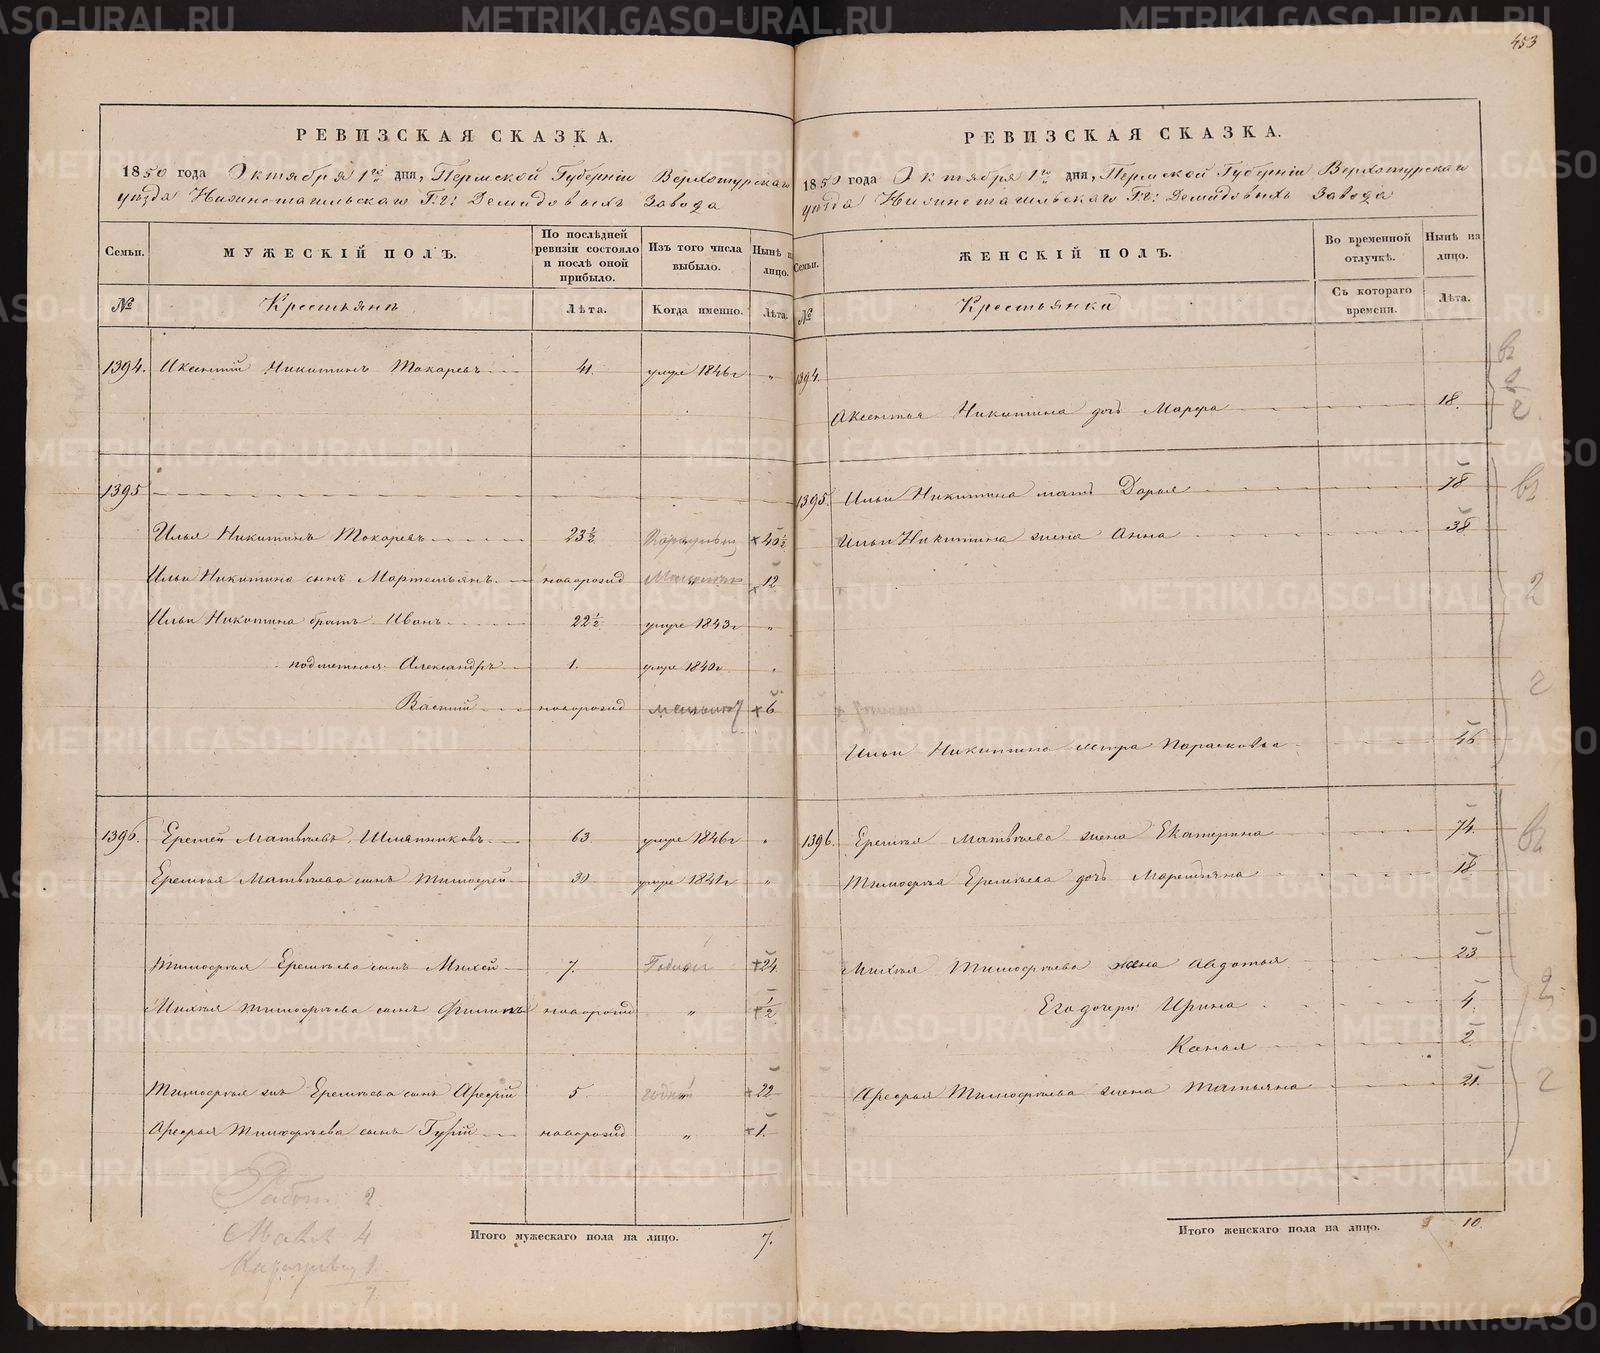 453
РЕВИЗСКАЯ СКАЗКА.
1850 года Октября 1го дня, Пермской Губерніи Верхотурскаго
уѣзда Нижнетагильскаго Г.г: Демидовыхъ Завода
Семьи. МУЖЕСКІЙ ПОЛЪ. По послѣдней ревизіи состояло и послѣ оной прибыло. Изъ того числа выбыло. Нынѣ на лицо.
№ Крестьянъ Лѣта. Когда именно. Лѣта.
1394. Аксентій Никитинъ Токаревъ 41. умре 1846 г „
1395
Илья Никитинъ Токаревъ 23½ + 40½
Ильи Никитина сынъ Мартемьянъ новорожд 12
Ильи Никитина братъ Иванъ 22½ умре 1843 г „
Александръ 1. умре 1840 г „
Василій новорожд + 6
1396. Еремей Матвѣевъ Шляпниковъ 63 умре 1846 г „
Еремѣя Матвѣева сынъ Тимофей 30 умре 1841 г „
Тимофея Еремѣева сынъ Михей 7. Годный + 24
Михея Тимофѣева сынъ Филипъ новорожд „ + ½
Тимофея Еремѣева сынъ Арефій 5. годный + 22
Арефья Тимофѣева сынъ Гурій новорожд „ + 1.
Работ. 2
Мал. 4
1.
7
Итого мужескаго пола на лицо. 7.
РЕВИЗСКАЯ СКАЗКА.
1850 года Октября 1го дня, Пермской Губерніи Верхотурскаго
уѣзда Нижнетагильскаго Г.г: Демидовыхъ Завода
Семьи. ЖЕНСКІЙ ПОЛЪ. Во временной отлучкѣ. Нынѣ на лицо.
№ Крестьянки Съ котораго времени. Лѣта.
1394.
Аксентья Никитина дочь Марфа 18.
1395. Ильи Никитина мать Дарья 78
Ильи Никитина жена Анна 38
Ильи Никитина сестра Парасковья 46
1396. Еремѣя Матвѣева жена Екатерина 74.
Тимофея Еремѣева дочь Маремьяна 18
Михея Тимофѣева жена Авдотья 23
Его дочери Ирина 4.
2.
Арефья Тимофѣева жена Татьяна 21.
Итого женскаго пола на лицо. 10.
METRIKI.GASO-URAL.RU